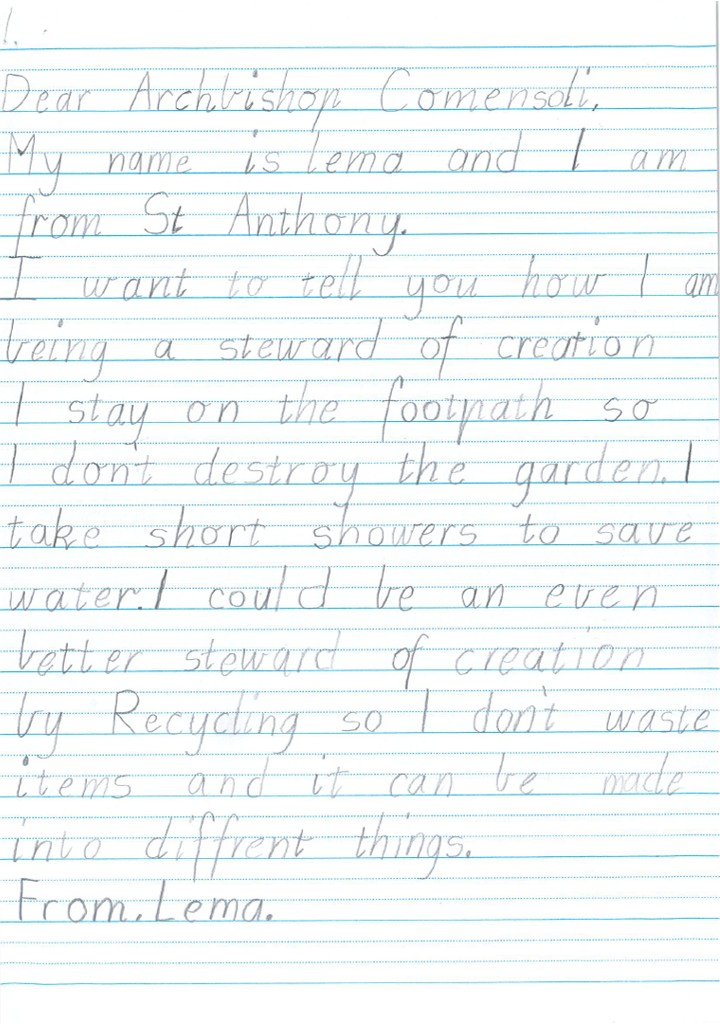 1.
Dear Archbishop Comensoli,
My name is lema and I am
from St Anthony.
I want to tell you how I am
being a steward of creation
I stay on the footpath so
I don't destroy the garden. I
take short showers to save
water. I could be an even
better steward of creation
by Recycling so I don't waste
items and it can be made
into diffrent things.
From. Lema.